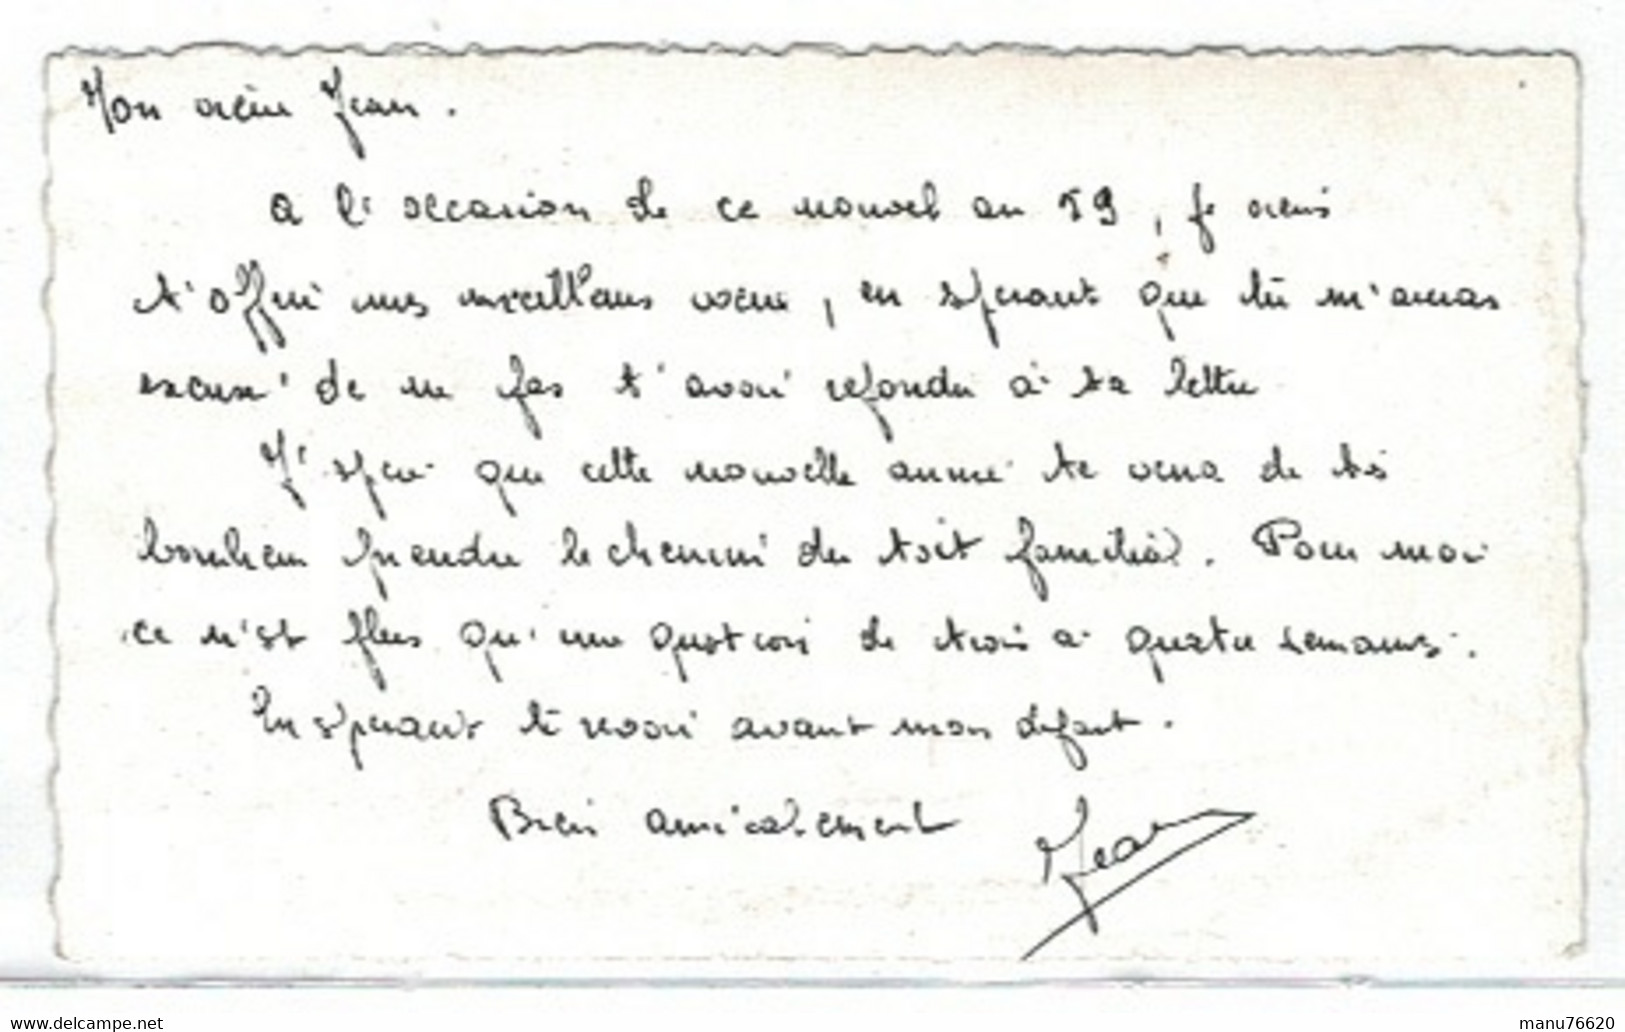 Mon vieux Jean.
A l'occasion de ce nouvel an 59, je viens
t'offrir mes meilleurs voeux, en espérant que tu m'auras
excusé de ne pas t'avoir répondu à ta lettre
J'espère que cette nouvelle année te verra de
bonheur prendre le chemin du toit familial. Pour moi
ce n'est plus qu'une question de trois à quatre semaines.
En espérant te revoir avant mon départ.
Bien amicalement Jean
www.delcampe.net
manu76620